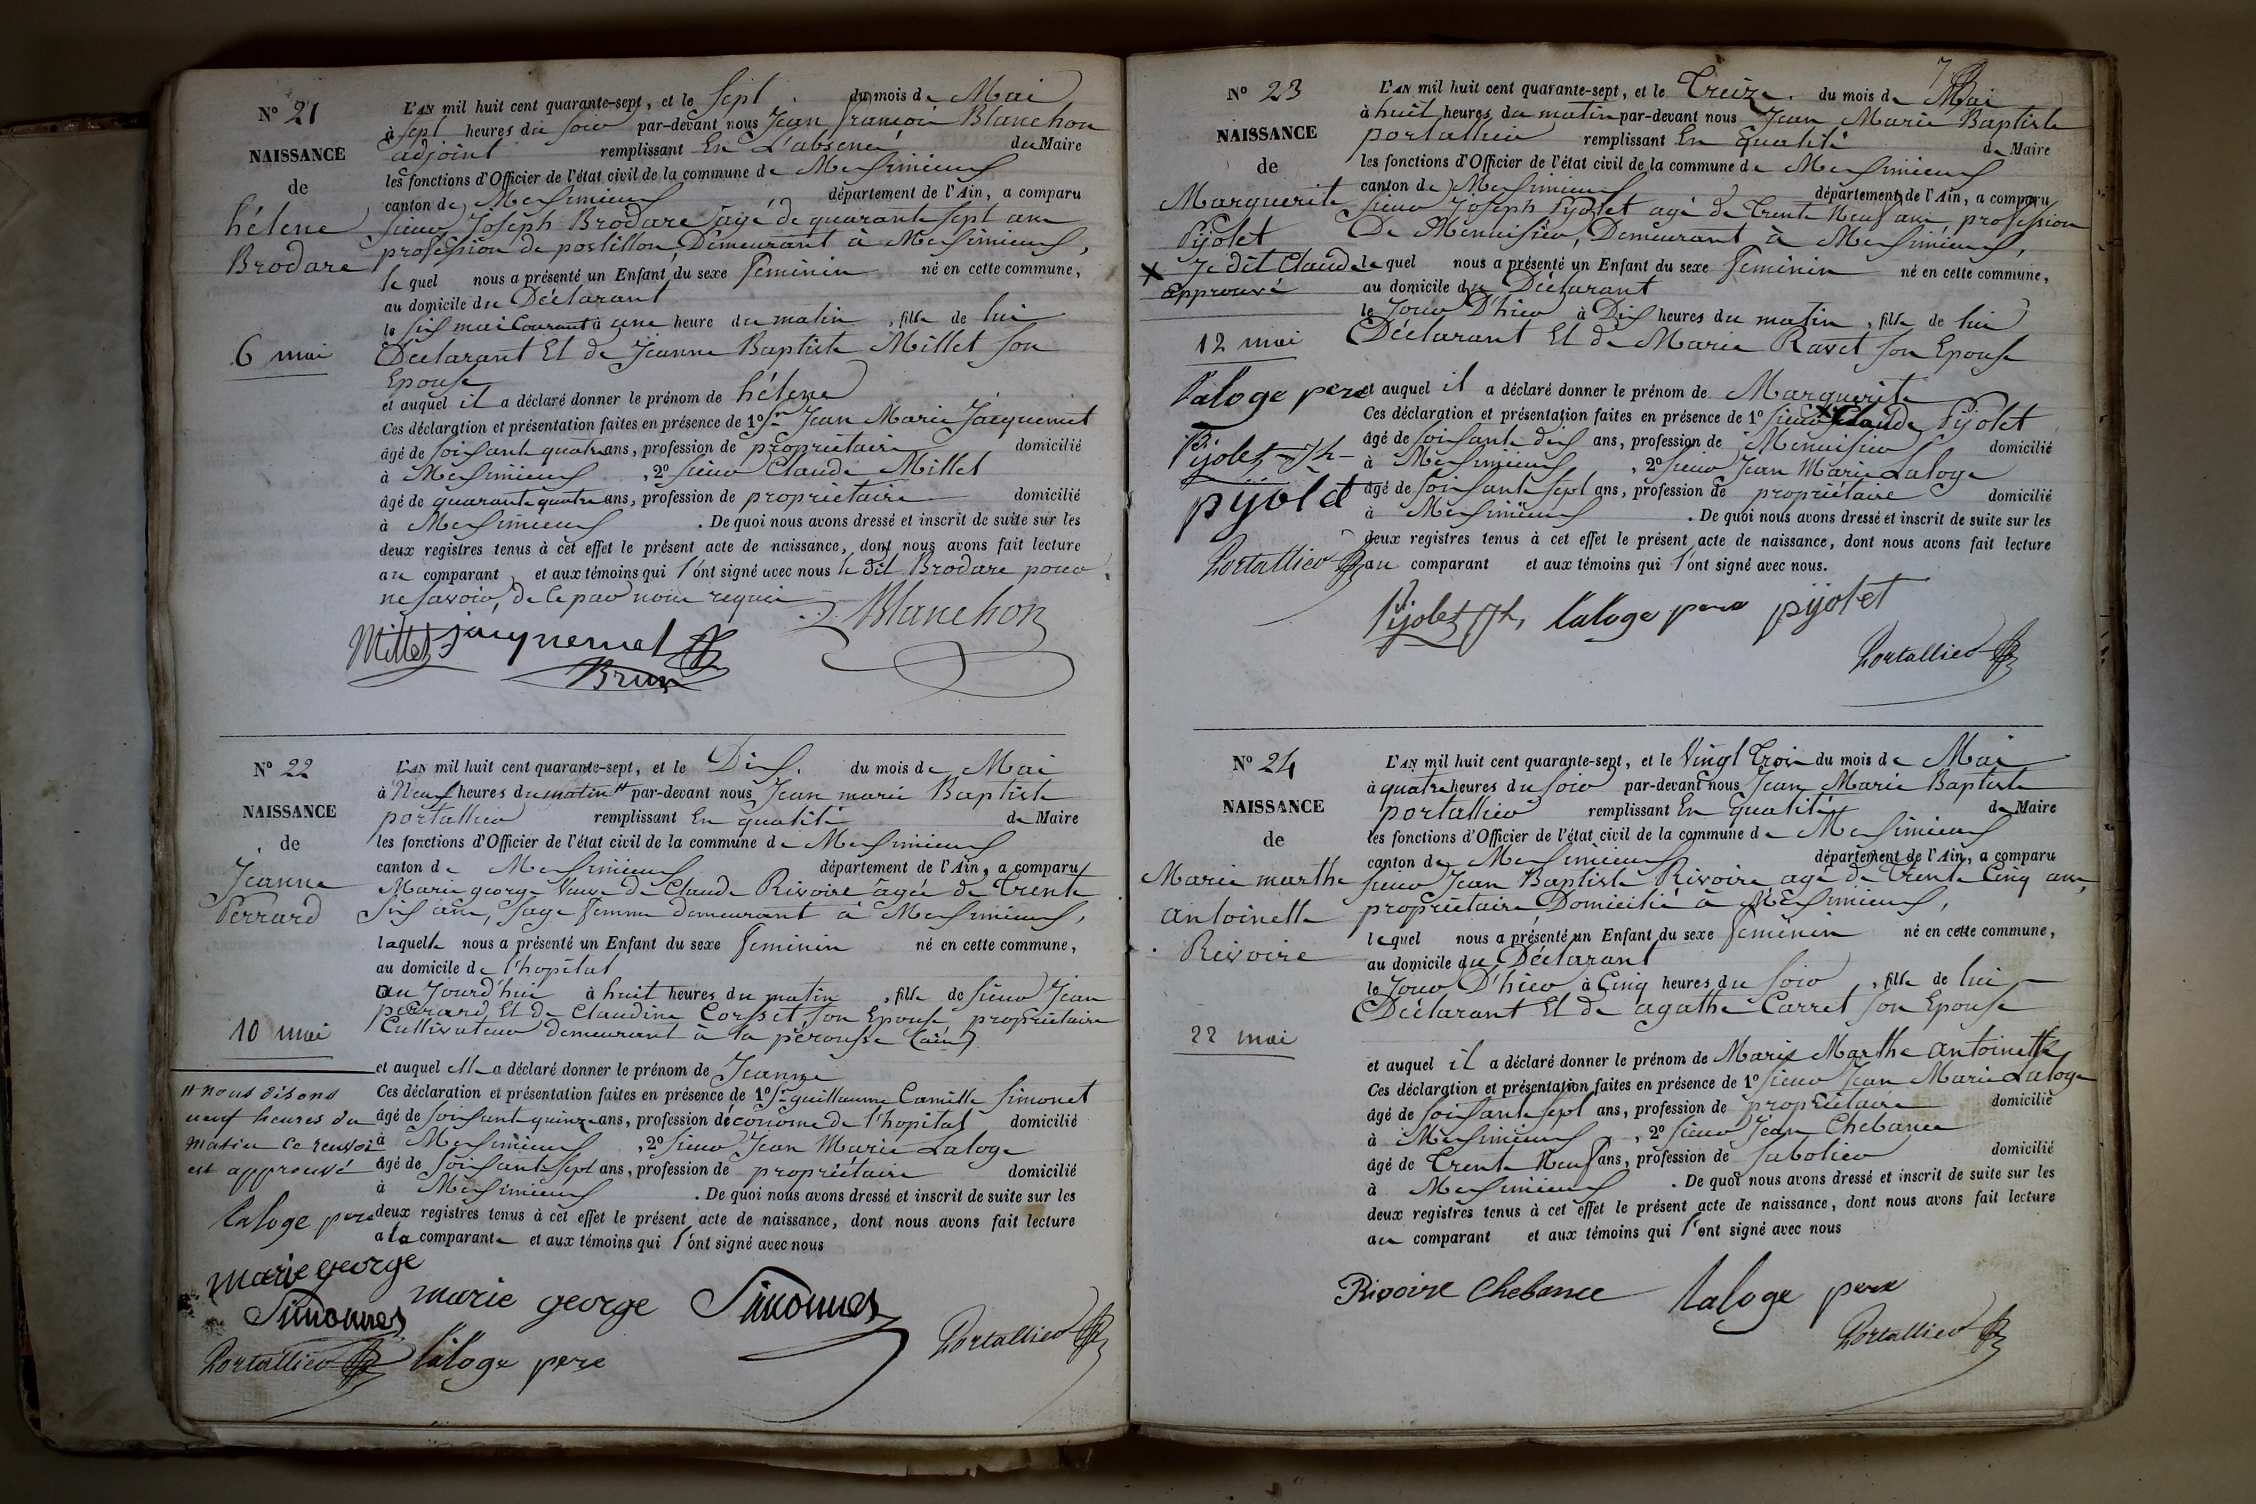 N° 21
NAISSANCE
de
hélene
Brodare
6 mai
L'AN mil huit cent quarante-sept, et le Sept du mois de Mai
à Sept heures du soir par-devant nous Jean françois Blanchon
adjoint remplissant En L'absence du Maire
les fonctions d'Officier de l'état civil de la commune de Meximieux
canton de Meximieux département de l'Ain, a comparu
sieur Joseph Brodare agé de quarante sept ans
profession de postillon, Demeurant à Meximieux,
le quel nous a présenté un Enfant du sexe feminin né en cette commune,
au domicile du Déclarant
le Six mai Courant à une heure du matin, fille de lui
Déclarant Et de Jeanne Baptiste Millet son
Epouse
et auquel il a déclaré donner le prénom de hélene
Ces déclaration et présentation faites en présence de 1° Sr Jean Marie Jacquemet
âgé de soixante quatre ans, profession de propriétaire domicilié
à Meximieux, 2° sieur Claude Millet
âgé de quarante quatre ans, profession de propriétaire domicilié
à Meximieux. De quoi nous avons dressé et inscrit de suite sur les
deux registres tenus à cet effet le présent acte de naissance, dont nous avons fait lecture
au comparant et aux témoins qui l'ont signé avec nous le dit Brodare pour
ne savoir, de ce par nous requis
Blanchon
Millet jacquemet
Brun
N° 22
NAISSANCE
de
Jeanne
Perrard
10 mai
L'AN mil huit cent quarante-sept, et le Dix. du mois de Mai
à Neuf heures du matin " par-devant nous Jean marie Baptiste
portallier remplissant En qualité de Maire
les fonctions d'Officier de l'état civil de la commune de Meximieux
canton de Meximieux département de l'Ain, a comparu
Marie george Veuve de Claude Rivoire agée de Trente
Six ans, Sage femme demeurant à Meximieux,
laquelle nous a présenté un Enfant du sexe feminin né en cette commune,
au domicile de l'hopital
au Jourd'hui à huit heures du matin, fille de sieur Jean
perrard Et de Claudine Corset son Epouse propriétaire
Cultivateur demeurant à la pérouse (ain)
et auquel elle a déclaré donner le prénom de Jeanne
Ces déclaration et présentation faites en présence de 1° Sr guillaume Camille Simonet
âgé de soixante quinze ans, profession d'économe de l'hopital domicilié
à Meximieux, 2° sieur Jean Marie Laloge
âgé de Soixante Sept ans, profession de propriétaire domicilié
à Meximieux. De quoi nous avons dressé et inscrit de suite sur les
deux registres tenus à cet effet le présent acte de naissance, dont nous avons fait lecture
a la comparante et aux témoins qui l'ont signé avec nous
" nous disons
neuf heures du
matin ce renvoi
est approuvé
laloge pere
marie george
Simonnet
Portallier
marie george Simonnet
laloge pere
Portallier
7
N° 23
NAISSANCE
de
Marguerite
Pijolet
x Je dit Claude
approuvé
12 mai
laloge pere
Pijolet Jh
pijolet
Portallier
L'AN mil huit cent quarante-sept, et le Treize. du mois de Mai
à huit heures du matin par-devant nous Jean Marie Baptiste
portallier remplissant En qualité de Maire
les fonctions d'Officier de l'état civil de la commune de Meximieux
canton de Meximieux département de l'Ain, a comparu
sieur Joseph Pijolet agé de Trente Neuf ans, profession
De Menuisier, Demeurant à Meximieux,
le quel nous a présenté un Enfant du sexe feminin né en cette commune,
au domicile du Déclarant
le Jour D'hier à Dix heures du matin, fille de lui
Déclarant Et de Marie Ravet son Epouse
et auquel il a déclaré donner le prénom de Marguerite
Ces déclaration et présentation faites en présence de 1° sieur x Claude Pijolet
âgé de soixante dix ans, profession de Menuisier domicilié
à Meximieux, 2° sieur Jean Marie Laloge
âgé de soixante sept ans, profession de propriétaire domicilié
à Meximieux. De quoi nous avons dressé et inscrit de suite sur les
deux registres tenus à cet effet le présent acte de naissance, dont nous avons fait lecture
au comparant et aux témoins qui l'ont signé avec nous.
Pijolet Jh, laloge pere pijolet
Portallier
N° 24
NAISSANCE
de
Marie marthe
antoinette
Rivoire
22 mai
L'AN mil huit cent quarante-sept, et le Vingt Trois du mois de Mai
à quatre heures du soir par-devant nous Jean Marie Baptiste
portallier remplissant En Qualité de Maire
les fonctions d'Officier de l'état civil de la commune de Meximieux
canton de Meximieux département de l'Ain, a comparu
sieur Jean Baptiste Rivoire, agé de Trente Cinq ans,
propriétaire Domicilié à Meximieux,
lequel nous a présenté un Enfant du sexe feminin né en cette commune,
au domicile du Déclarant
le Jour D'hier à Cinq heures du soir, fille de lui
Déclarant Et de agathe Carret son Epouse
et auquel il a déclaré donner le prénom de Marie Marthe antoinette
Ces déclaration et présentation faites en présence de 1° sieur Jean Marie Laloge
âgé de soixante sept ans, profession de propriétaire domicilié
à Meximieux, 2° sieur Jean Chebance
âgé de Trente Neuf ans, profession de sabotier domicilié
à Meximieux. De quoi nous avons dressé et inscrit de suite sur les
deux registres tenus à cet effet le présent acte de naissance, dont nous avons fait lecture
au comparant et aux témoins qui l'ont signé avec nous
Rivoire Chebance laloge pere
Portallier